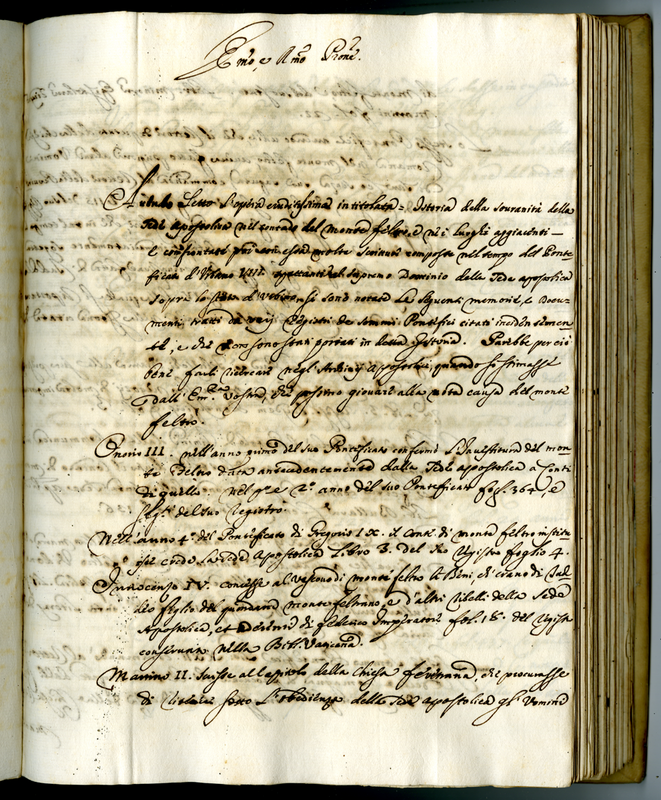 Em̃o e Rm̃o Prõne.
Avendo Letto l'opera eruditissima intitolata = Istoria della souranità della
Sede Apostolica nel contado del monte feltro, e ne i luoghi aggiacenti —
e confrontato poi con essa molte composte nel tempo del Ponte
ficato d'Urbano VIII. al supremo Dominio della Sede apostolica
sopra lo stato d'Urbino sono notate le seguenti memorie, e Docu-
menti tratti da varij Registri de sommi Pontefici citati incidentemen-
te, e che non sono stati portati in detta Istoria. Sarebbe perciò
bene farli ricercare negl'Archivij Apostolici, quando si stimasse
dall'Em.za Vostra, che potessero giovare alla nota causa del monte
feltro.
Onorio III. nell'anno primo del suo Pontificato confermò l'Investitura del mon
te feltro data antecedentemente dalla Sede apostolica a Conti
di quello. Nel p.o e 2.o anno del suo Pontificato fogl. 364, e
del suo Registro.
Nell'anno 4.o del Pontificato di Gregorio IX. il Conte di monte feltro institu
erede la Sede Apostolica Libro 3. del suo Registro foglio 4.
Innocenzo IV. concesse al vescovo di monte feltro li Beni, di
figlio del monte feltrano, e d'altri ribelli della Sede
Apostolica, et aderenti di federico Imperatore fol. 18. del Regist.
conservato nella Bibl. Vaticana.
Martino II. scrisse al Capitolo della Chiesa feretrana, che procurasse
di ridurre sotto l'obedienza della Sede apostolica gl'Uomini